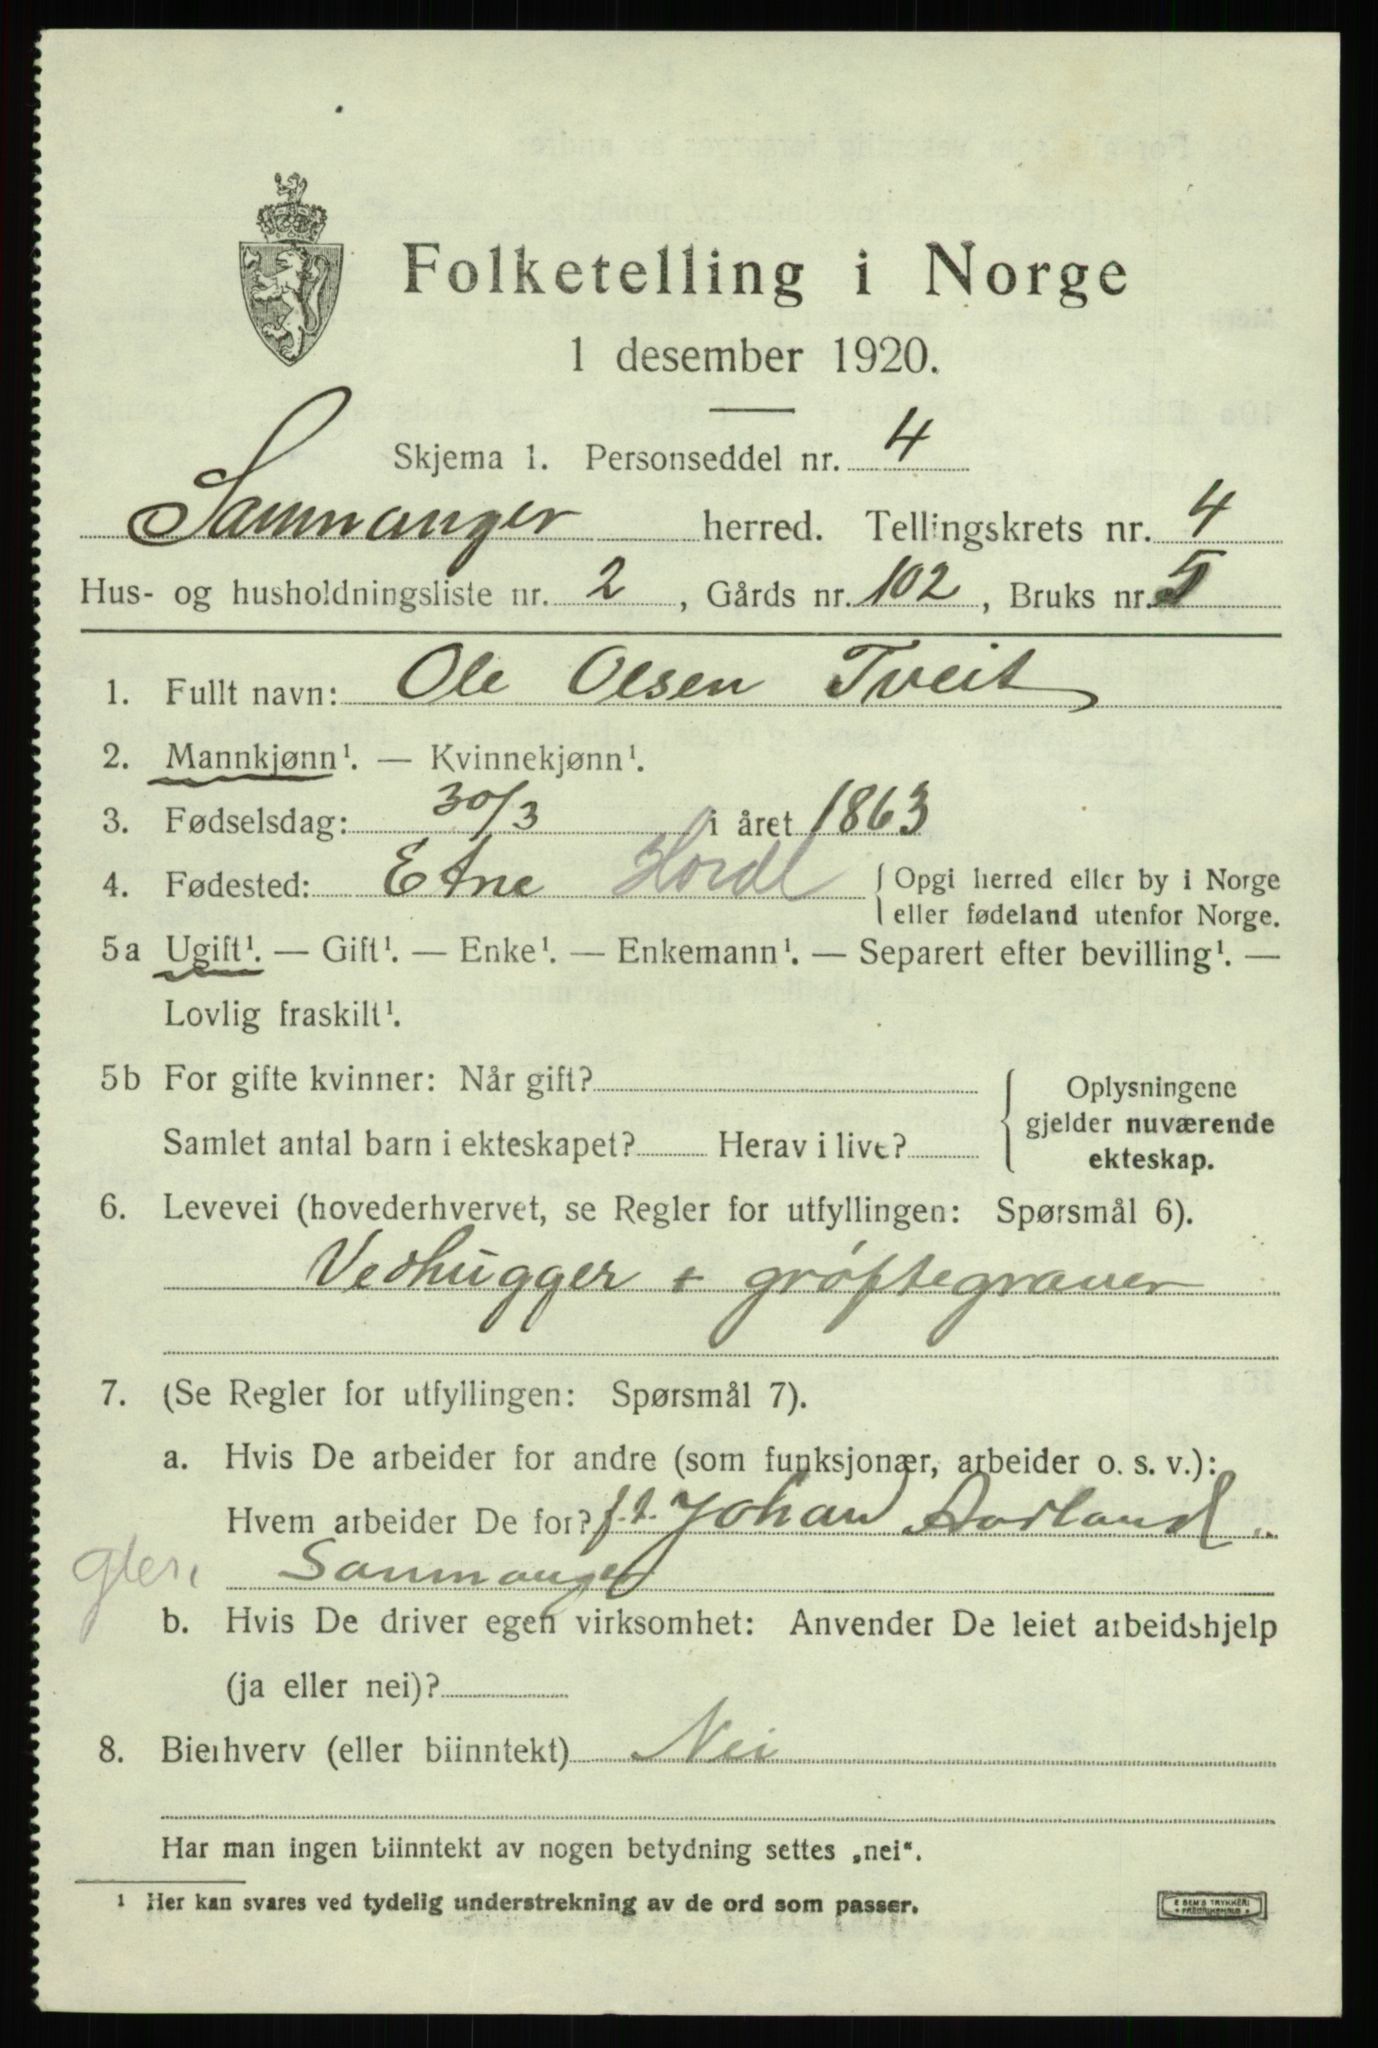 Folketelling i Norge
1 desember 1920.
Skjema 1. Personseddel nr. 4
Samnanger herred. Tellingskrets nr. 4
Hus- og husholdningsliste nr. 2, Gårds nr. 102, Bruks nr. 5
1. Fullt navn: Ole Olsen Tveit
2. Mannkjønn¹. — Kvinnekjønn¹.
3. Fødselsdag: 30/3 i året 1863
4. Fødested: Etne Hordl { Opgi herred eller by i Norge
eller fødeland utenfor Norge.
5a Ugift¹. — Gift¹. — Enke¹. — Enkemann¹. — Separert efter bevilling¹. —
Lovlig fraskilt¹.
5b For gifte kvinner: Når gift?
Samlet antal barn i ekteskapet? Herav i live?
Oplysningene
gjelder nuværende
ekteskap.
6. Levevei (hovederhvervet, se Regler for utfyllingen: Spørsmål 6).
Vedhugger + grøftegraver
7. (Se Regler for utfyllingen: Spørsmål 7).
a. Hvis De arbeider for andre (som funksjonær, arbeider o. s. v.):
Hvem arbeider De for? f.t. Johan Aadland
Samnanger
b. Hvis De driver egen virksomhet: Anvender De leiet arbeidshjelp
(ja eller nei)?
8. Bierhverv (eller biinntekt) Nei
Har man ingen biinntekt av nogen betydning settes „nei“.
¹ Her kan svares ved tydelig understrekning av de ord som passer.